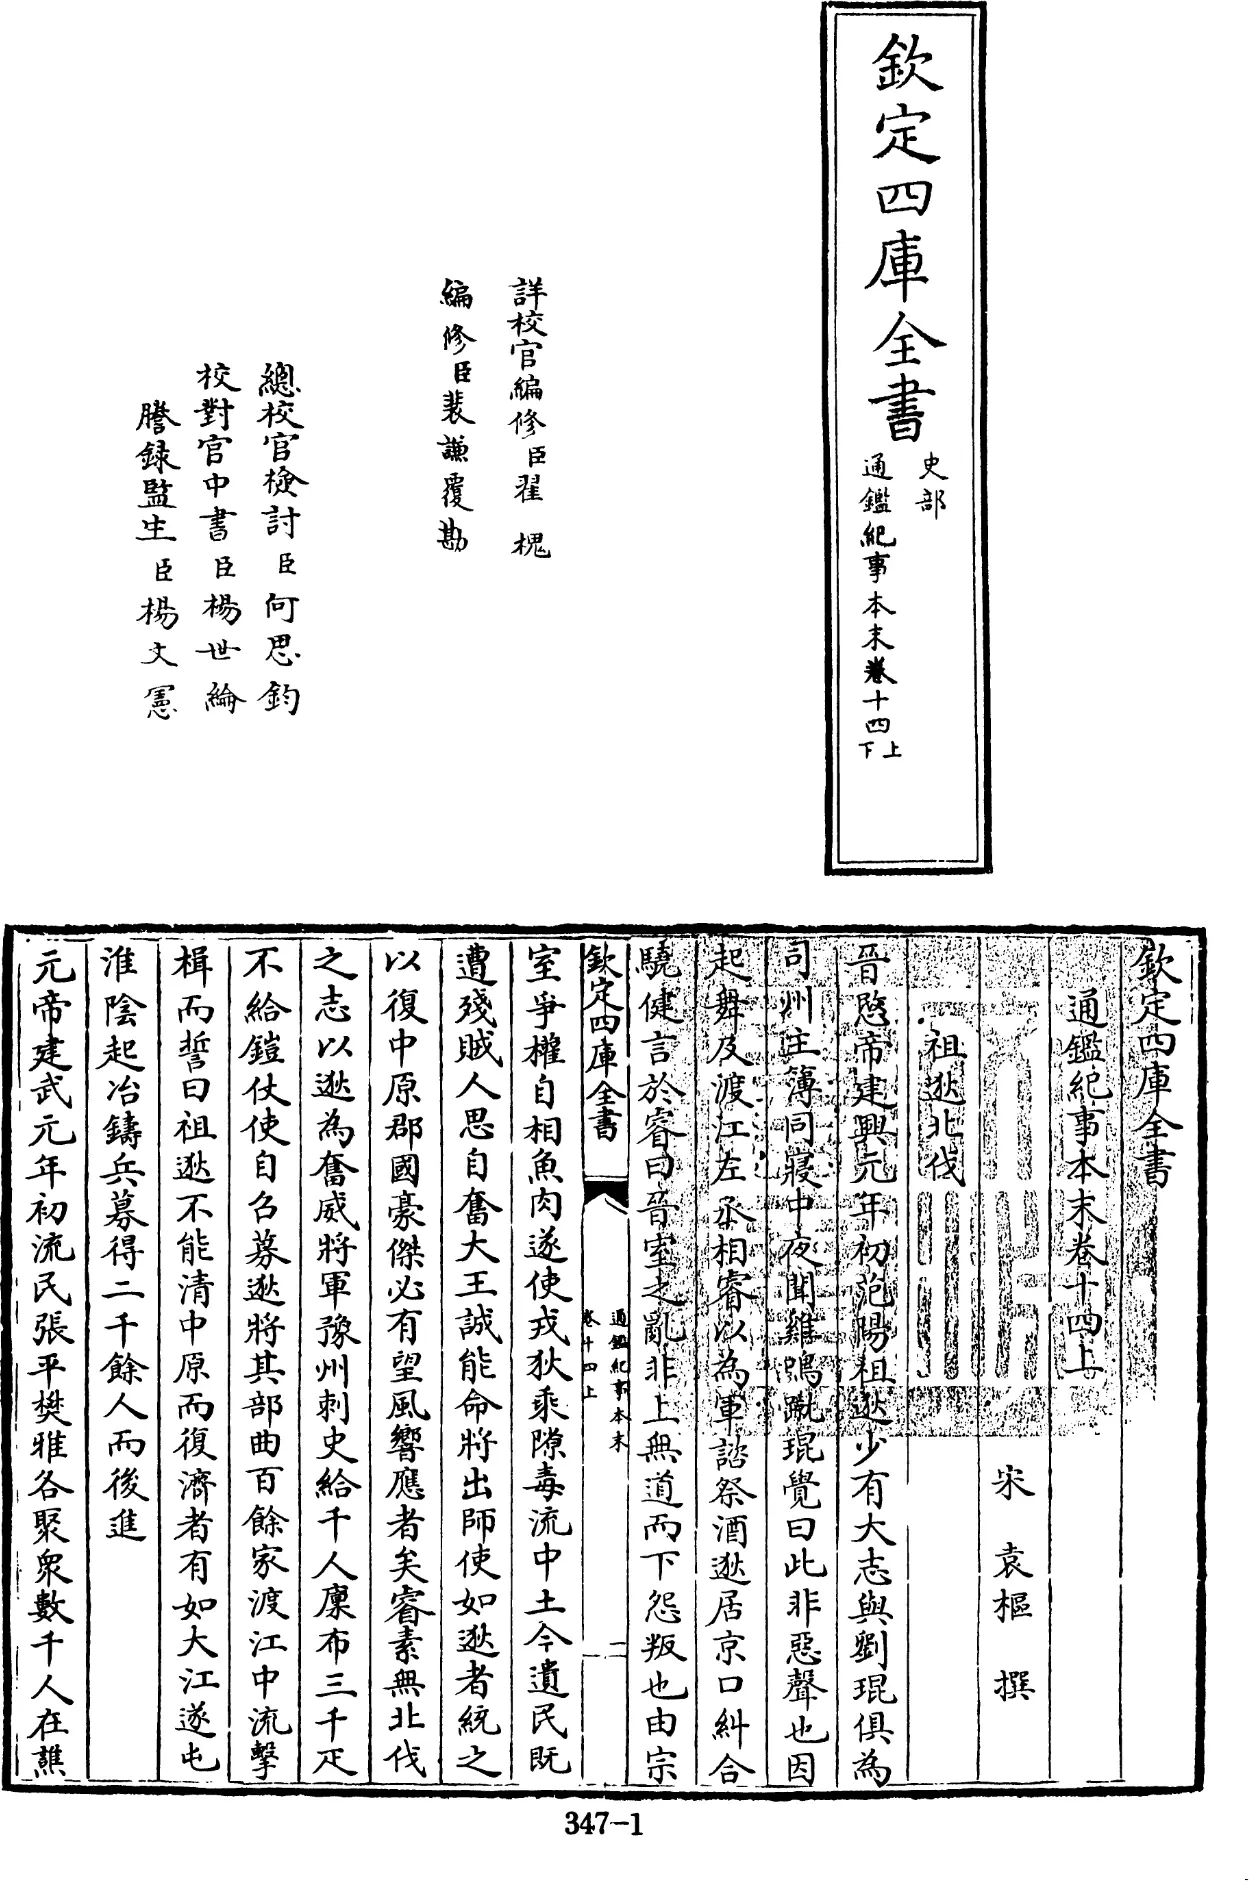 欽定四庫全書
史部
通鑑紀事本末卷十四上下
詳校官編修臣翟槐
編修臣裴謙覆勘
總校官檢討臣何思鈞
校對官中書臣楊世綸
謄錄監生臣楊文憲
欽定四庫全書
通鑑紀事本末卷十四上
宋 袁樞 撰
祖逖北伐
晉愍帝建興元年初范陽祖逖少有大志與劉琨俱為
司州主簿同寢中夜聞雞鳴蹴琨覺曰此非惡聲也因
起舞及渡江左丞相睿以為軍諮祭酒逖居京口糾合
驍健言於睿曰晉室之亂非上無道而下怨叛也由宗
欽定四庫全書
通鑑紀事本末
卷十四上
一
室爭權自相魚肉遂使戎狄乘隙毒流中土今遺民既
遭殘賊人思自奮大王誠能命將出師使如逖者統之
以復中原郡國豪傑必有望風響應者矣睿素無北伐
之志以逖為奮威將軍豫州刺史給千人廪布三千疋
不給鎧仗使自召募逖將其部曲百餘家渡江中流擊
楫而誓曰祖逖不能清中原而復濟者有如大江遂屯
淮陰起冶鑄兵募得二千餘人而後進
元帝建武元年初流民張平樊雅各聚衆數千人在譙
347-1